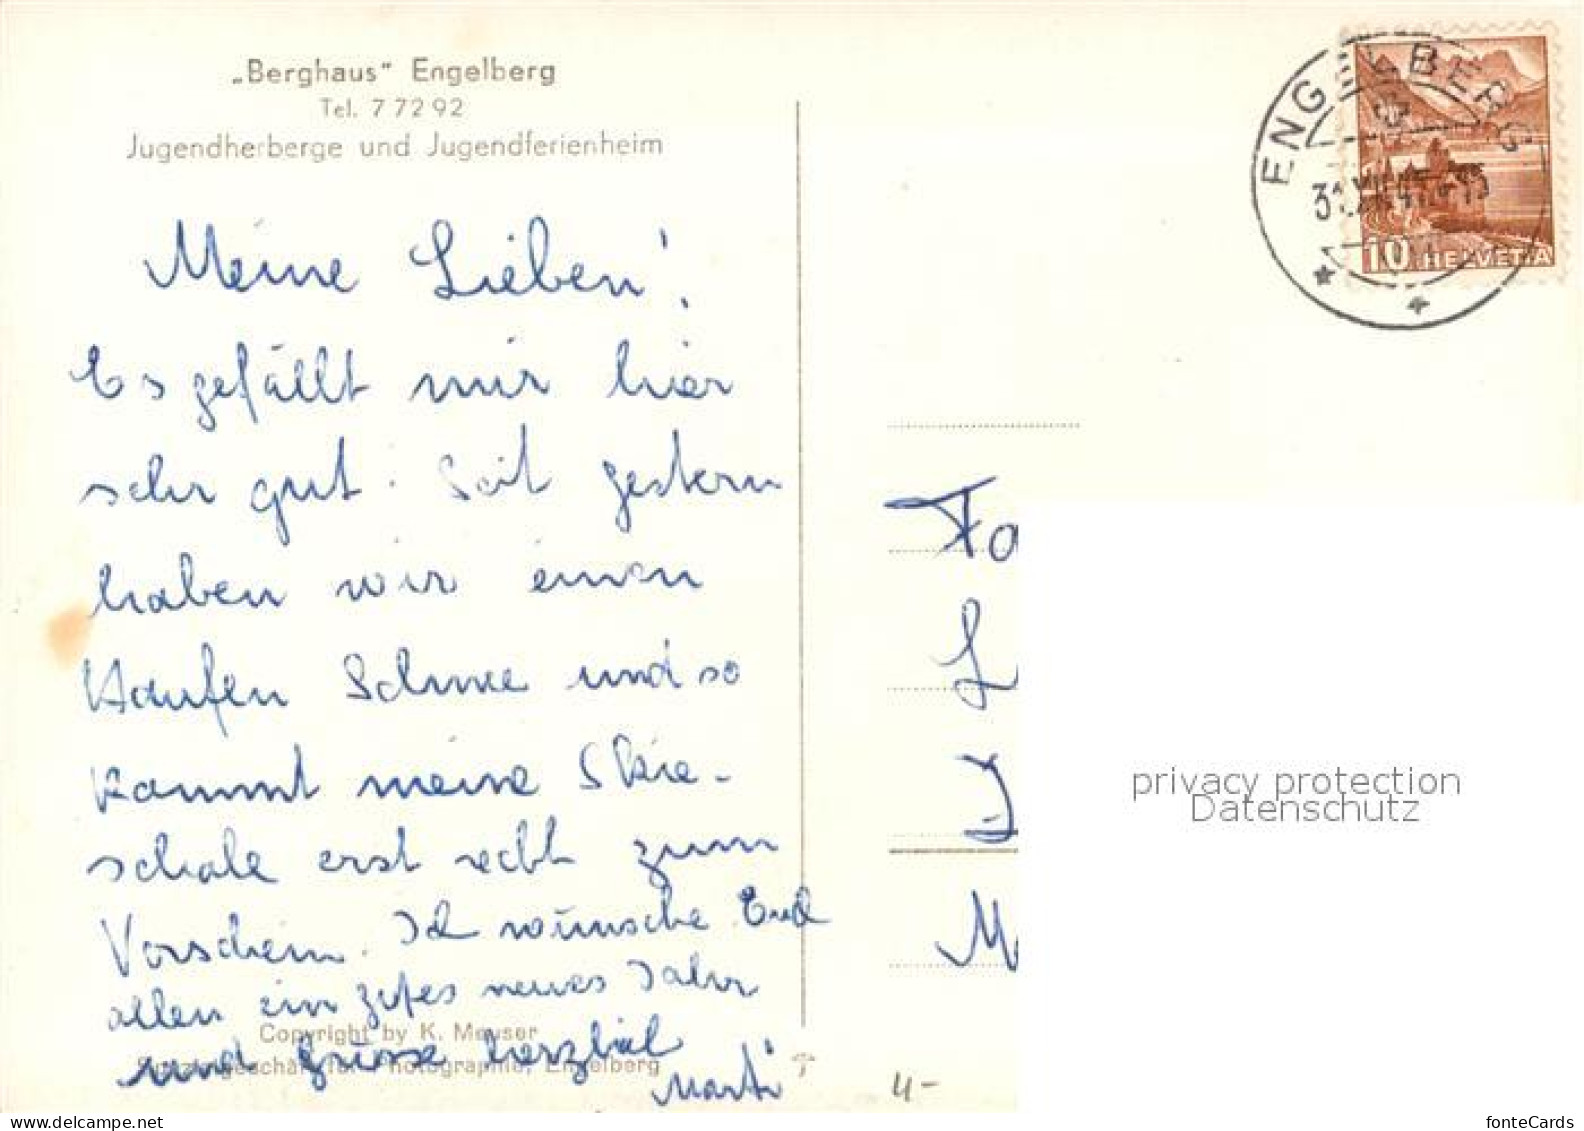 „Berghaus" Engelberg
Tel. 7 72 92
Jugendherberge und Jugendferienheim
Meine Lieben!
Es gefällt mir hier
sehr gut. Seit gestern
haben wir einen
Haufen Schnee und so
kommt meine Skie-
schule erst recht zum
Vorschein. Ich wünsche Euch
allen ein gutes neues Jahr
und grüsse herzlich
Copyright by K. Meuser
Photographie, Engelberg
ENGELBERG
10 HELVETIA
Fa
L
D
M
privacy protection
Datenschutz
4-
fonteCards